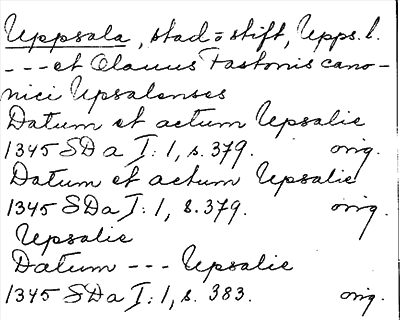 Uppsala, stad = stift, Upps. l.
--- et Olauus Fastonis cano-
nici Upsalenses
Datum et actum Upsalie
1345 SD a I: 1, s. 379. orig.
Datum et actum Upsalie
1345 SD a I: 1, s. 379. orig.
Upsalie
Datum --- Upsalie
1345 SD a I: 1, s. 383. orig.